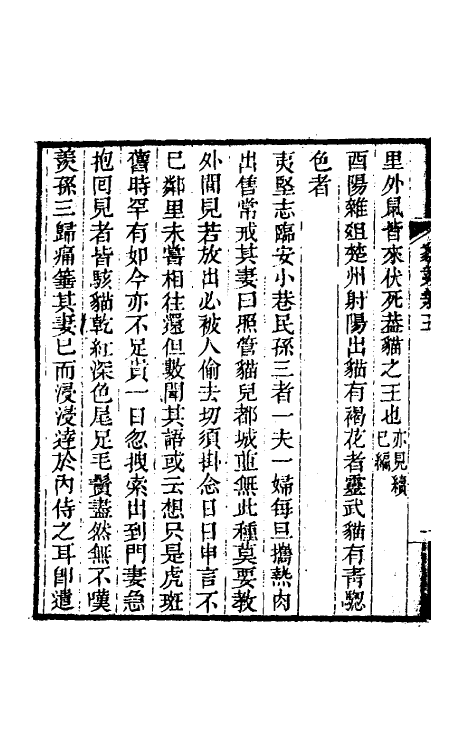 里外鼠皆來伏死葢貓之王也亦見續已編
酉陽雜俎楚州射陽出貓有褐花者靈武貓有青驄
色者
夷堅志臨安小巷民孫三者一夫一婦每旦攜熱肉
出售常戒其妻曰照管貓兒都城並無此種莫要教
外閒見若放出必被人偷去切須掛念日日申言不
已鄰里未嘗相往還但數聞其語或云想只是虎斑
舊時罕有如今亦不足貴一日忽拽索出到門妻急
抱回見者皆駭貓乾紅深色尾足毛鬚盡然無不嘆
羨孫三歸痛箠其妻已而浸浸達於內侍之耳卽遣